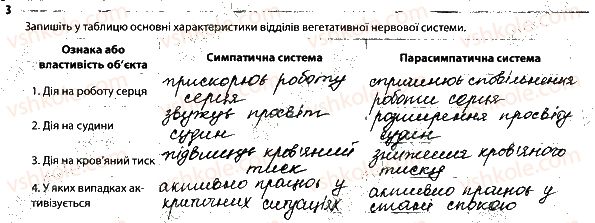 3
Запишіть у таблицю основні характеристики відділів вегетативної нервової системи.
Ознака або властивість об'єкта
Симпатична система
Парасимпатична система
1. Дія на роботу серця
прискорює роботу
серця
сприяє сповільнення
роботи серця
2. Дія на судини
звужує просвіт
судин
розширення просвіту
судин
3. Дія на кров'яний тиск
підвищує кров'яний
тиск
зниження кров'яного
тиску
4. У яких випадках ак-
тивізується
активно працює у
критичних ситуаціях
активно працює у
стані спокою
vshkole.com